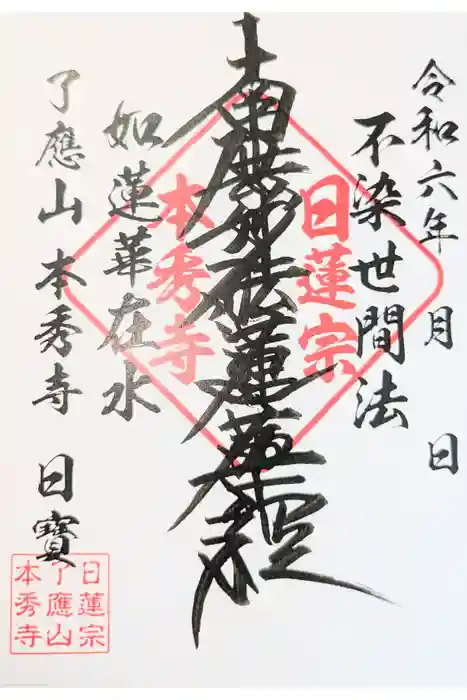 令和六年 月 日
不染世間法
日蓮宗
南無妙法蓮華経
本秀寺
如蓮華在水
了應山 本秀寺 日寶
日蓮宗
了應山
本秀寺